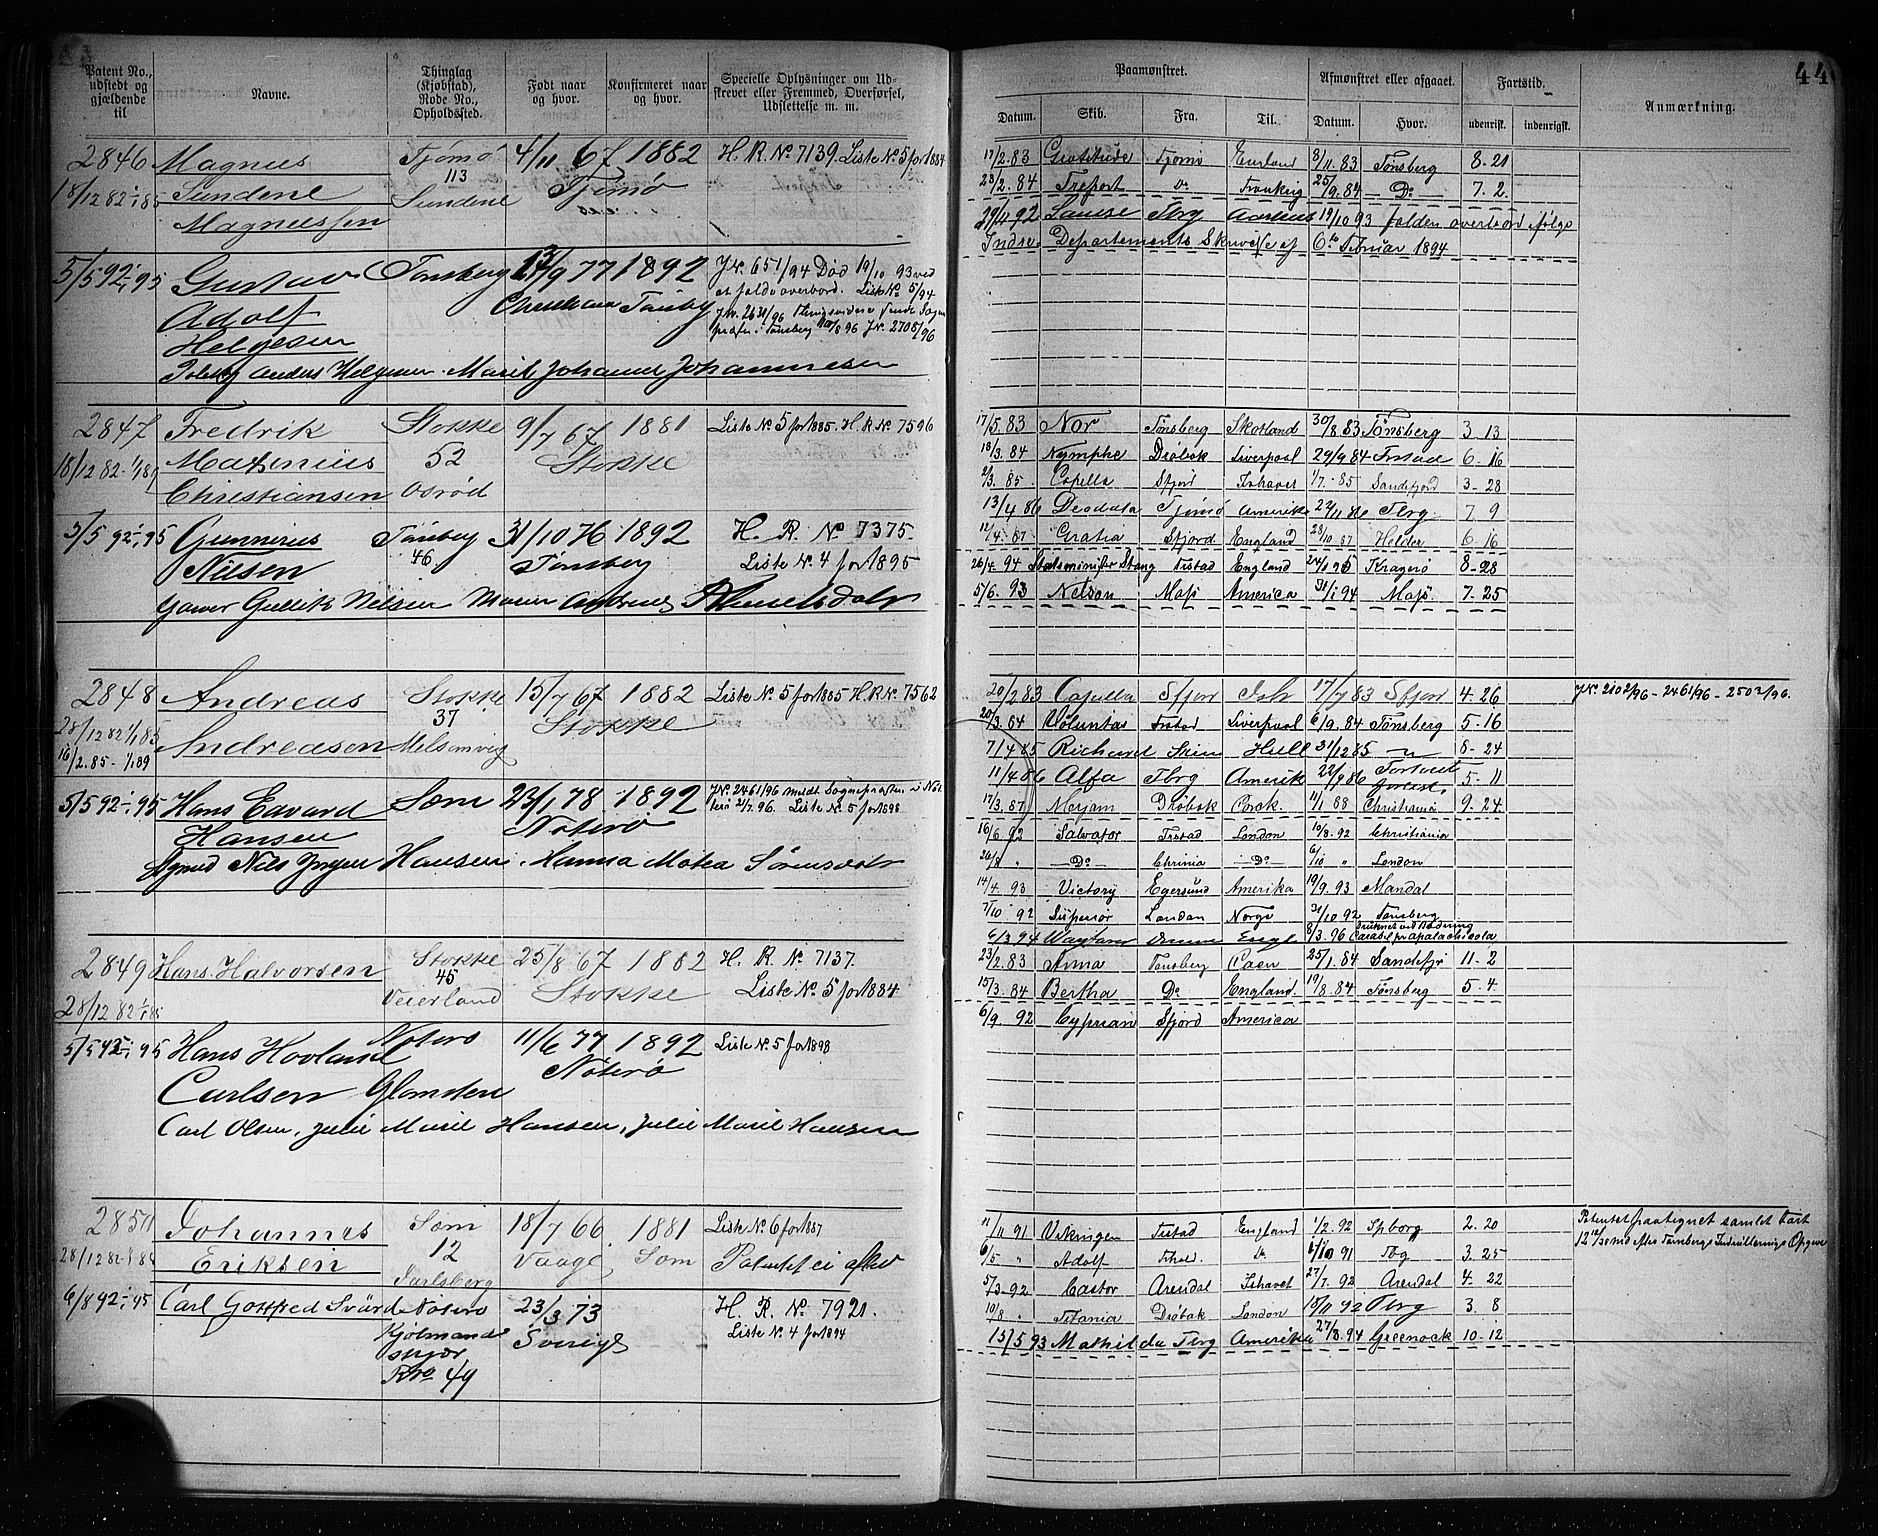 44
Patent No., udstedt og gjældende til
Navne.
Thinglag (Kjøbstad), Rode No., Opholdssted.
Født naar og hvor.
Konfirmeret naar og hvor.
Specielle Oplysninger om Udskrevet eller Fremmed, Overførsel, Udslettelse m. m.
Paamønstret.
Afmønstret eller afgaaet.
Fartstid.
Anmærkning.
Datum. Skib. Fra. Til. Datum. Hvor. udenrigsk. indenrigsk.
2846 Magnus Tjømø 4/11 67 1882 H. R. No 7139. Liste No 5 for 1884
18/12 82 1/1 85 Sundene 113 Tjømø
Magnussen Sundene
5/5 92 1/1 95 Gustav Tønsberg 13/9 77 1892 J.No 651/94 Død 19/10 93 ved
Adolf
Helgesen
Anders Helgesen. Marie Johanne Johannesen
2847 Fredrik Stokke 9/7 67 1881 Liste No 5 for 1885. H. R. No 7596
18/12 82 Mathinius 52 Stokke
Christiansen
5/5 92 1/1 95 Gunnerius Tønsberg 31/10 76 1892 H. R. No 7375.
Nilsen 46 Tønsberg Liste No 4 for 1895
Gullik Nilsen
2848 Andreas Stokke 15/7 67 1882 Liste No 5 for 1885 H. R. No 7562
28/12 82 1/1 85 37 Stokke
16/2. 85 - 1/1 89 Andreasen Melsomvig
5/5 92 1/1 95 Hans Edvard Sæm 23/1 78 1892
Hansen Nøterø Liste No 5 for 1898
Hansen. Hanna Mathea Sørensdatr
2849 Hans Halvorsen Stokke 25/8 67 1882 H. R. No 7137.
45 Stokke Liste No 5 for 1884
28/12 82 1/1 85 Veierland
5/5 92 1/1 95 Hans Hovland Nøterø 11/6 77 1892 Liste No 5 for 1898
Carlsen Glomsten Nøterø
Carl Olsen, Julie Marie Hansen, Julie Marie Hansen
2850 Johannes Sæm 18/7 66 1881 Liste No 6 for 1887
28/12 82 1/1 85 Eriksen 12 Vaage Sæm
Jarlsberg
6/8 92 1/1 95 Carl Gottfred Svärd Nøterø 23/3 73 H. R. No 7921.
Kjølmandskjær Sverige Liste No 4 for 1894
Rno 49
17/2. 83 Gratitude Tjømø England 8/11. 83 Tønsberg 8. 21
23/2. 84 Treport Do Frankrig 25/9. 84 Do 7. 2
29/11 92 Louise Tbrg Aarhus 19/10 93 falden overbord ifølge
Indre Departements Skrivelse af 6te Februar 1894
17/5. 83 Nor Tønsberg Skotland 30/8. 83 Tønsberg 3. 13
18/3. 84 Nymphe Drøbak Liverpool 29/9 84 Frstad 6. 16
2/3. 85 Capella Sfjord Ishavet 1/7. 85 Sandefjord 3. 28
13/4 86 Deodata Tjømø Amerika 22/11 86 Tbrg 7. 9
12/4. 87 Gratia Sfjord England 28/10 87 Helder 6. 16
26/4. 94 Statsminister Stang Frstad England 24/1 95 Kragerø 8. 28
5/6. 93 Nelson Moss America 31/1 94 Moss 7. 25
20/2 83 Capella Sfjord Ish 17/7 83 Sfjord 4. 26 J.No 2102/96 - 2461/96 - 2502/96.
20/3. 84 Voluntas Frstad Liverpool 6/9. 84 Tønsberg 5. 16
7/4 85 Richard Skien Hull 31/12 85 8. 24
11/4. 86 Alfa Tbrg Amerika 22/9 86 5. 11
17/3. 87 Mirjam Drøbak Cork. 11/1 88 Christiania 9. 24
16/6 92 Salvator Frstad London 10/8. 92 Christiania
26/8 " Do Chrinia Do 6/10 " London
14/4. 93 Victory Egersund Amerika 19/9. 93 Mandal
7/10 92 Superior London Norge 31/10 92 Tønsberg
6/3 94 Engl. 8/3. 96
23/2. 83 Anna Tønsberg Caen 25/1. 84 Sandefjr 11. 2
15/3. 84 Bertha Do England. 19/8. 84 Tønsberg 5. 4.
6/9. 92 Cyprian Sfjord America
11/11 91 Vikingen Frstad England 1/2. 92 Spborg 2. 20
6/5 " Adolf Do Tbg 3. 25
5/3. 92 Castor Arendal Ishavet 27/7. 92 Arendal 4. 22
10/8 " Titania Drøbak London 18/11 92 Tbrg 3. 8
15/5 93 Mathilda Tbrg Amerika 27/3. 94 Greenock 10. 12